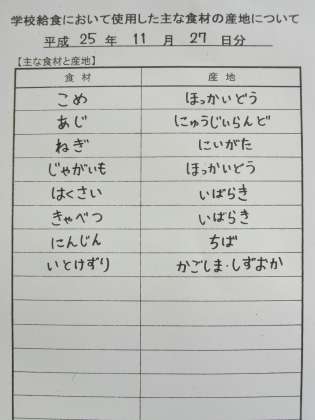 学校給食において使用した主な食材の産地について
平成 25 年 11 月 27 日分
【主な食材と産地】
食材 産地
こめ ほっかいどう
あじ にゅうじいらんど
ねぎ にいがた
じゃがいも ほっかいどう
はくさい いばらき
きゃべつ いばらき
にんじん ちば
いとけずり かごしま・しずおか